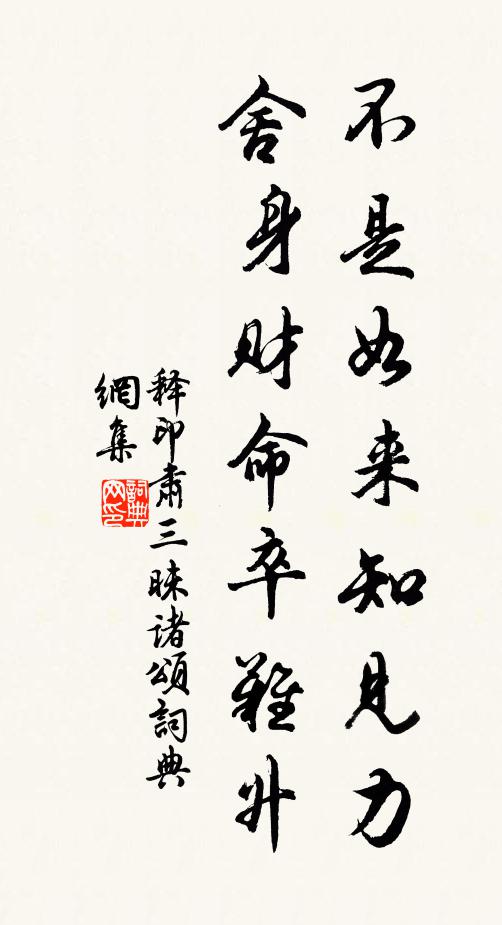 不是如来知见力
舍身财命卒難升
释印肃三昧诸頌詞典
網集
詞典網印